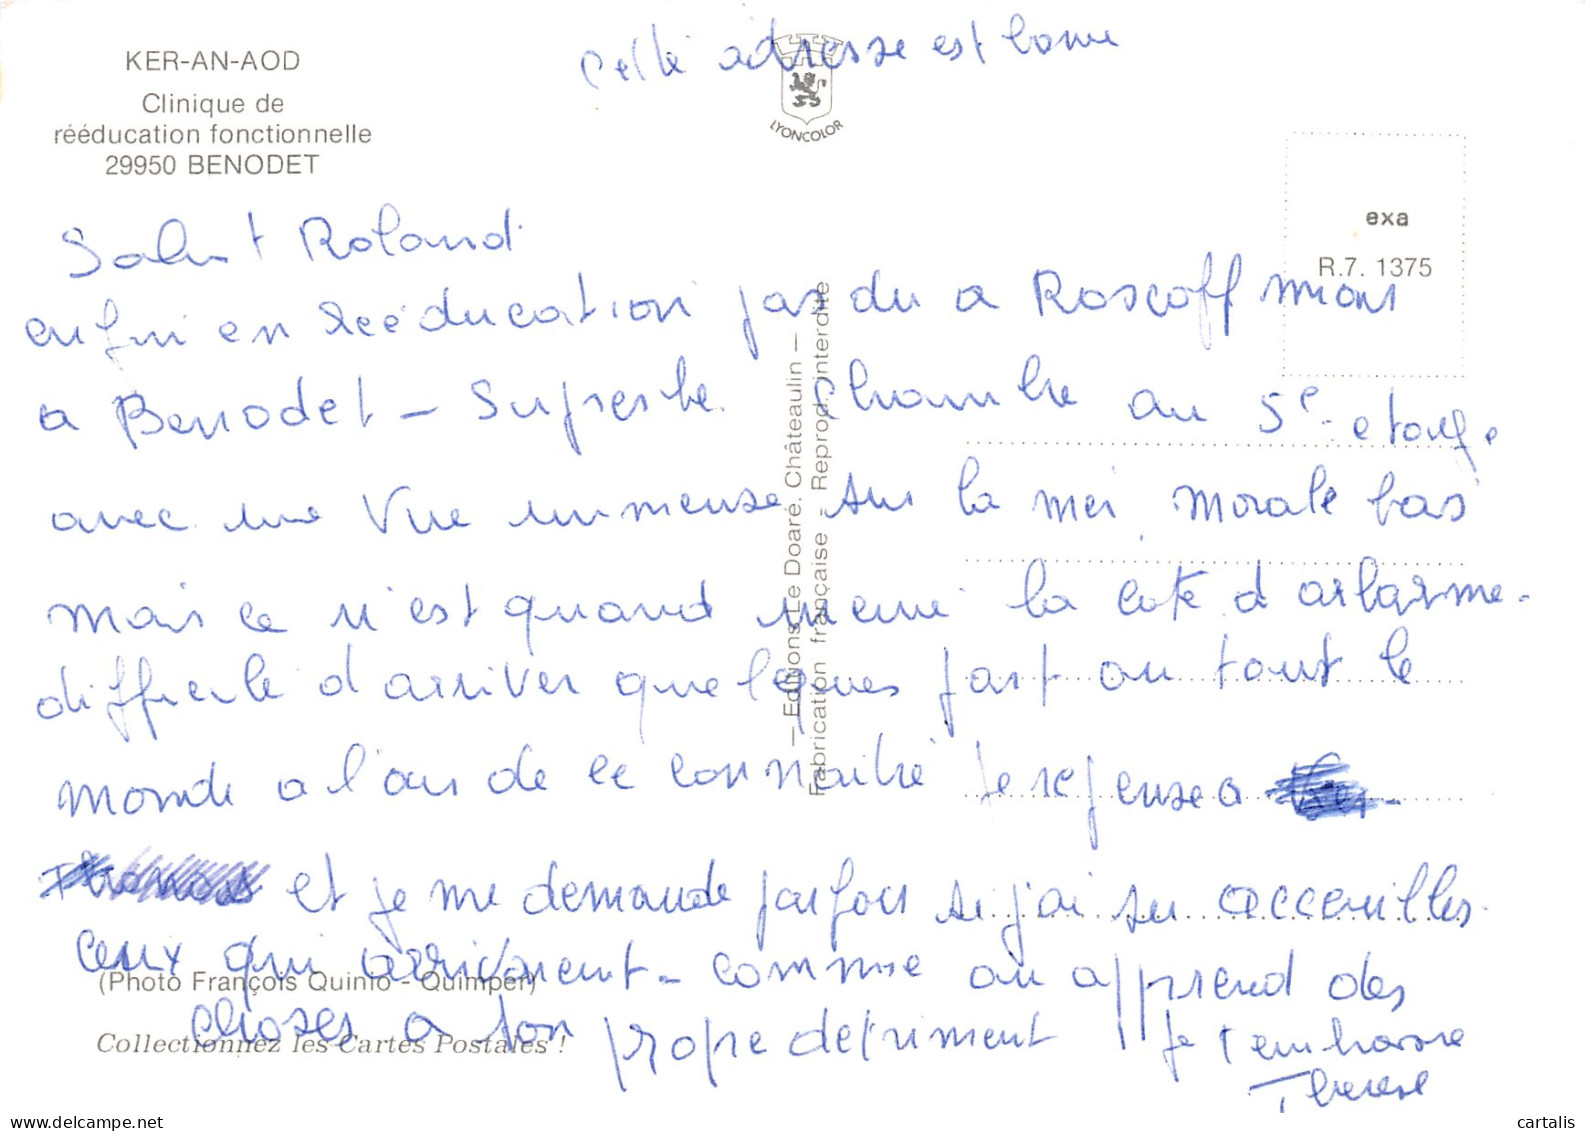 KER-AN-AOD
Clinique de
rééducation fonctionnelle
29950 BENODET
Cette adresse est bonne
LYONCOLOR
exa
R.7. 1375
Salut Roland
enfin en rééducation pas du a Roscoff mais
a Benodet – Superbe chambre au 5e etage.
avec une vue immense sur la mer morale bas
mais ce n'est quand meme la cote d alarme.
difficile d arriver quelques part ou tout le
monde a l'air de ce connaitre Je repense a
et je me demande parfois si j'ai su acceuilles
ceux qui arrivaient – comme on apprend des
choses a son propre detriment Je t'embrasse
Therese
— Editions Le Doaré. Châteaulin —
Fabrication française - Reprod. interdite
(Photo François Quinio - Quimper)
Collectionnez les Cartes Postales !
delcampe.net
cartalis